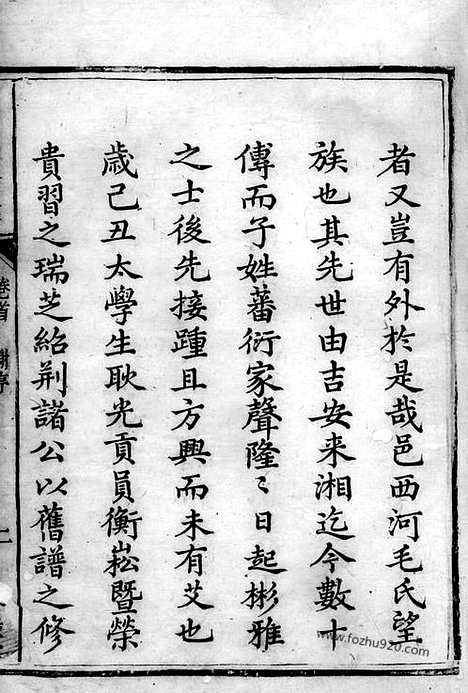 者又豈有外於是哉邑西河毛氏望
族也其先世由吉安来湘迄今數十
傳而子姓蕃衍家聲隆〻日起彬雅
之士後先接踵且方興而未有艾也
歲己丑太學生耿光貢員衡崧暨榮
貴習之瑞芝紹荆諸公以舊譜之修
卷首
www.fozhu920.com